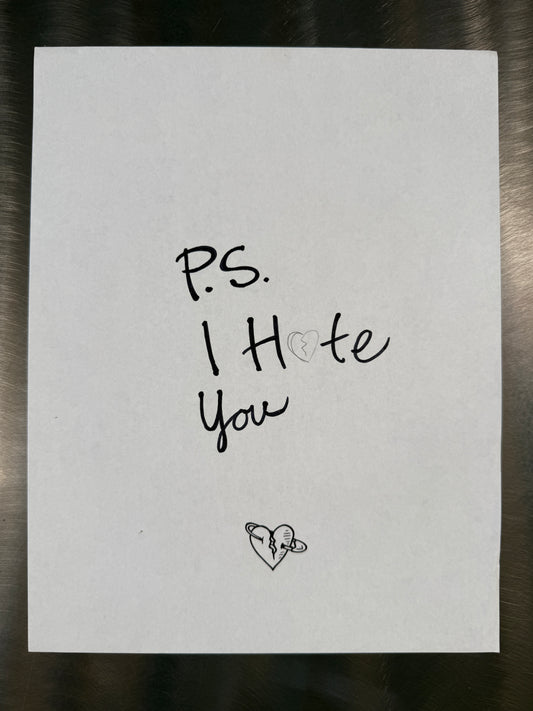 P.S.
I H💔te
You